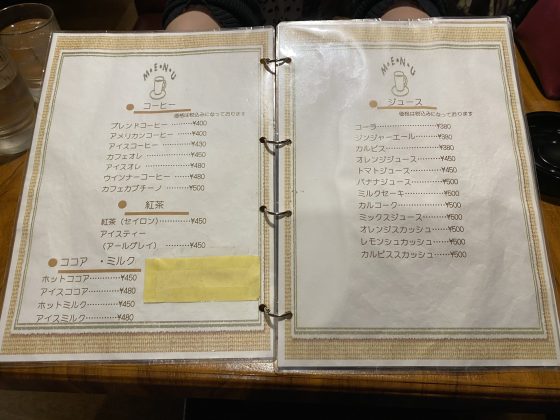 MENU
コーヒー
価格は税込みになっております
ブレンドコーヒー ………¥400
アメリカンコーヒー ……¥400
アイスコーヒー …………¥430
カフェオレ ………………¥450
アイスオレ ………………¥480
ウインナーコーヒー ……¥480
カフェカプチーノ ………¥500
紅茶
紅茶（セイロン）………¥450
アイスティー
（アールグレイ）………¥450
ココア ・ミルク
ホットココア…………¥450
アイスココア…………¥480
ホットミルク…………¥450
アイスミルク…………¥480
MENU
ジュース
価格は税込みになっております
コーラ ……………………¥380
ジンジャーエール…………¥380
カルピス …………………¥380
オレンジジュース…………¥450
トマトジュース……………¥450
バナナジュース……………¥500
ミルクセーキ………………¥500
カルコーク…………………¥500
ミックスジュース…………¥500
オレンジスカッシュ………¥500
レモンシュカッシュ………¥500
カルピススカッシュ………¥500